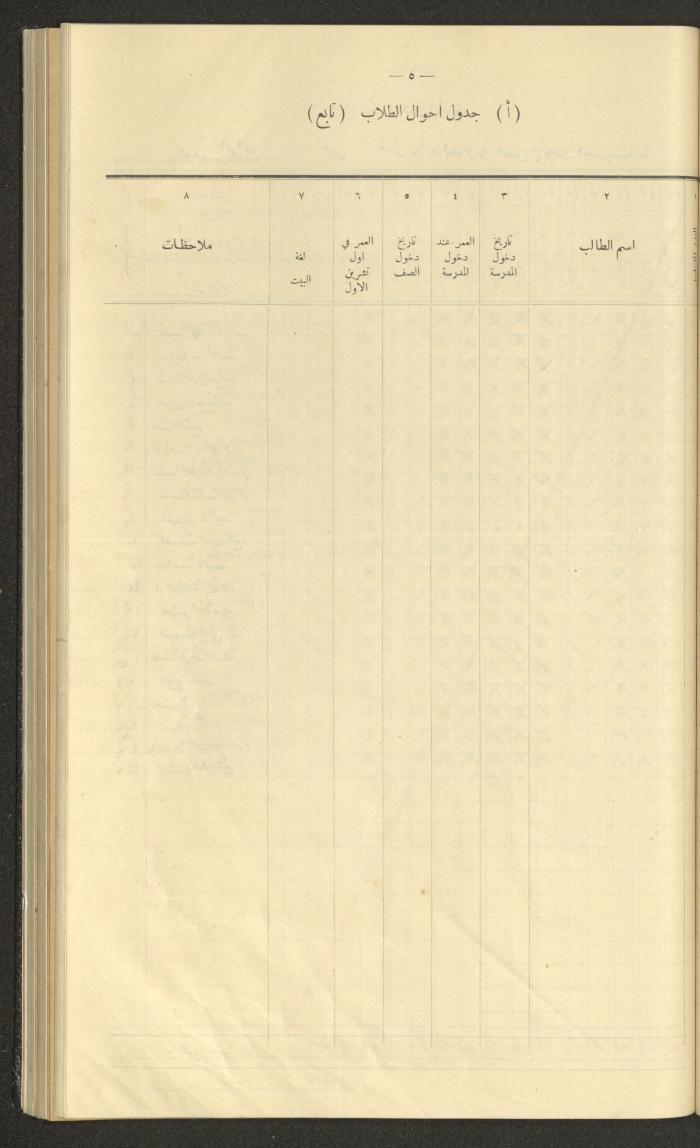 — ٥ —
(أ) جدول احوال الطلاب (تابع)
١ ٢ ٣ ٤ ٥ ٦ ٧ ٨
اسم الطالب
تاريخ
دخول
المدرسة
العمر عند
دخول
المدرسة
تاريخ
دخول
الصف
العمر في
اول
تشرين
الاول
لغة
البيت
ملاحظات